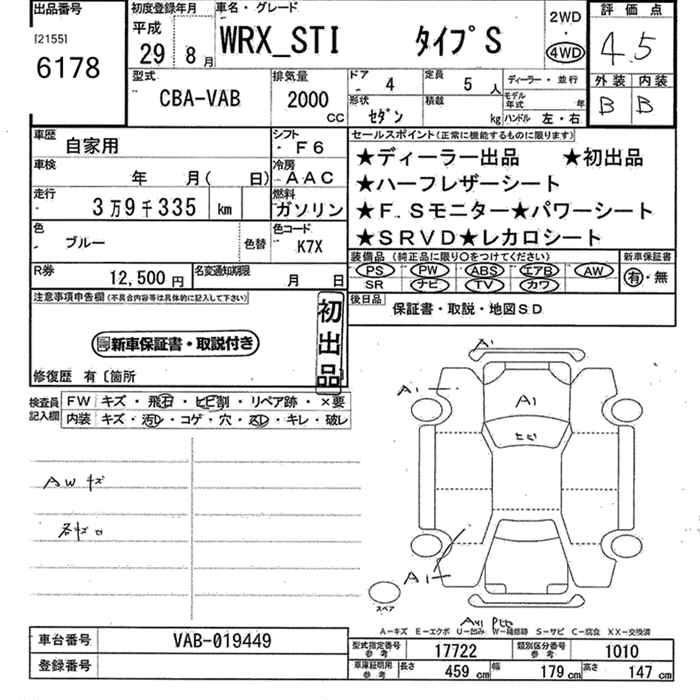 出品番号
[2155]
6178
初度登録年月
平成
29年 8月
車名・グレード
WRX_STI タイプS
2WD
・
4WD
評価点
4.5
外装 内装
B B
型式
CBA-VAB
排気量
2000 CC
ドア 4
形状 セダン
定員 5 人
積載 kg
ディーラー・並行
モデル年式 年
ハンドル 左・右
車歴 自家用
シフト ・ F6
車検 年 月( 日)
冷房 AAC
走行 3万9千335 km
燃料 ガソリン
色 ブルー
色替
色コード K7X
R券 12,500円
名変通知期限 月 日
セールスポイント(正常に機能するものに限ります)
★ディーラー出品 ★初出品
★ハーフレザーシート
★F.Sモニター★パワーシート
★SRVD★レカロシート
装備品 (純正品に限り○をつけてください)
PS PW ABS エアB AW
SR ナビ TV カワ
新車保証書
有・無
後日品 保証書・取説・地図SD
注意事項申告欄(不具合内容等は具体的に記入して下さい)
新車保証書・取説付き
初出品
修復歴 有〔箇所
検査員記入欄
FW キズ・飛石・ヒビ割・リペア跡・×要
内装 キズ・汚レ・コゲ・穴・スレ・キレ・破レ
AWキズ
各キズ
A1
A1
A1
ヒビ
A1
スペア
A-キズ E-エクボ U-凹み W-補修跡 S-サビ C-腐食 XX-交換済
車台番号 VAB-019449
登録番号
型式指定番号 参考 17722
類別区分番号 参考 1010
車庫証明用 参考 長さ 459 cm 幅 179 cm 高さ 147 cm